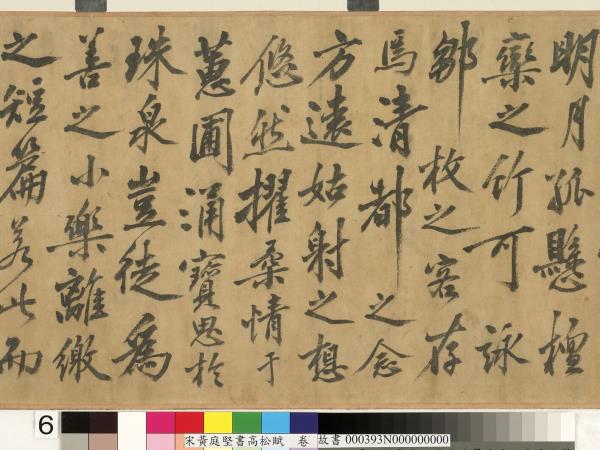 明月孤懸檀
欒之竹可詠
鄒枚之客存
焉清都之念
方遠姑射之想
悠然擢柔情于
蕙圃涌寶思於
珠泉豈徒爲
善之小樂離繳
之短篇若此而
6
宋黃庭堅書高松賦 卷 故書 000393N000000000